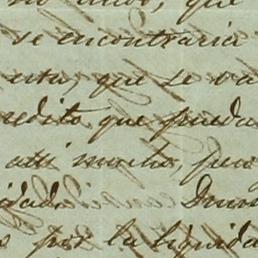 que
se encontraria
esta, que se va
redito que pueda
asi mucho, pero
idad i Dem
por la liquida